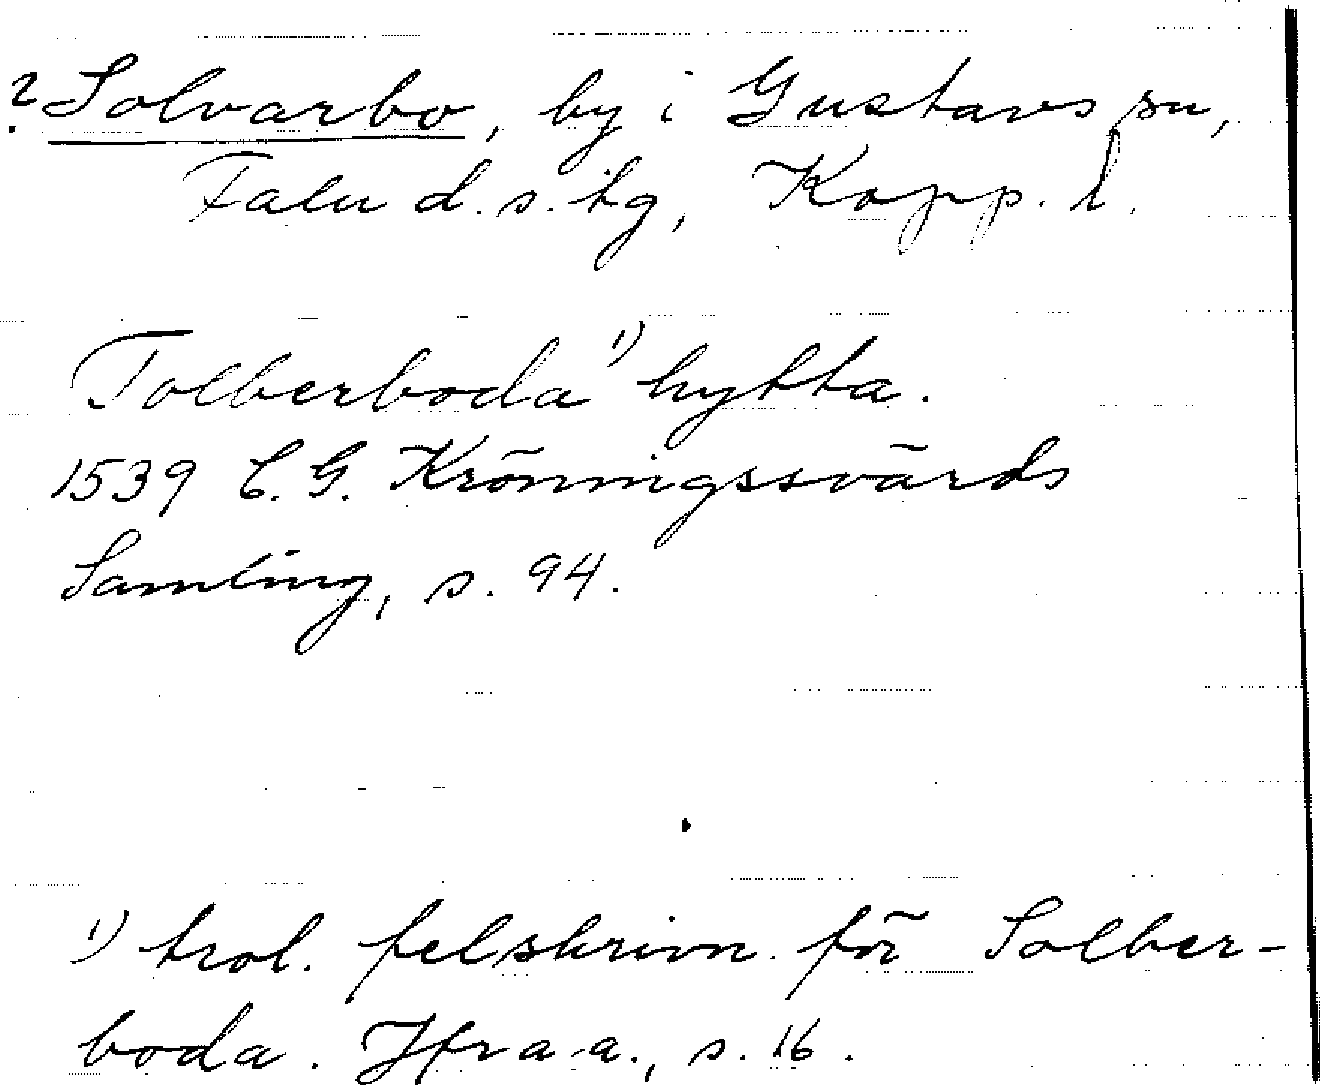 ? Solvarbo, by i Gustavs sn,
Falu d.s. tg, Kopp. l.
Tolberboda ¹⁾ hytta.
1539 C.G. Kröningssvärds
Samling, s. 94.
¹⁾ trol. felskrivn. för Solber-
boda. Jfr a.a., s. 16.